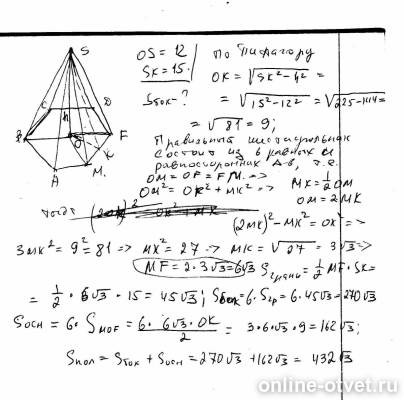 S
C h D
B O F
K
A M
OS = 12
SK = 15.
Sбок?
По Пифагору
OK = √SK² - h² =
= √15² - 12² = √225 - 144 =
= √81 = 9;
Правильный шестиугольник
состоит из 6 равных
равносторонних Δ-в, т.е.
OM = OF = FM. =>
OM² = OK² + MK² => MK = 1/2 OM
OM = 2MK
тогда
(2MK)² - MK² = OK² =>
3MK² = 9² = 81 => MK² = 27 => MK = √27 = 3√3 =>
MF = 2·3√3 = 6√3 Sграни = 1/2 MF·SK =
= 1/2 · 6√3 · 15 = 45√3; Sбок = 6·Sгр = 6·45√3 = 270√3
Sосн = 6·SMOF = 6·6√3·OK/2 = 3·6√3·9 = 162√3;
Sпол = Sбок + Sосн = 270√3 + 162√3 = 432√3
online-otvet.ru